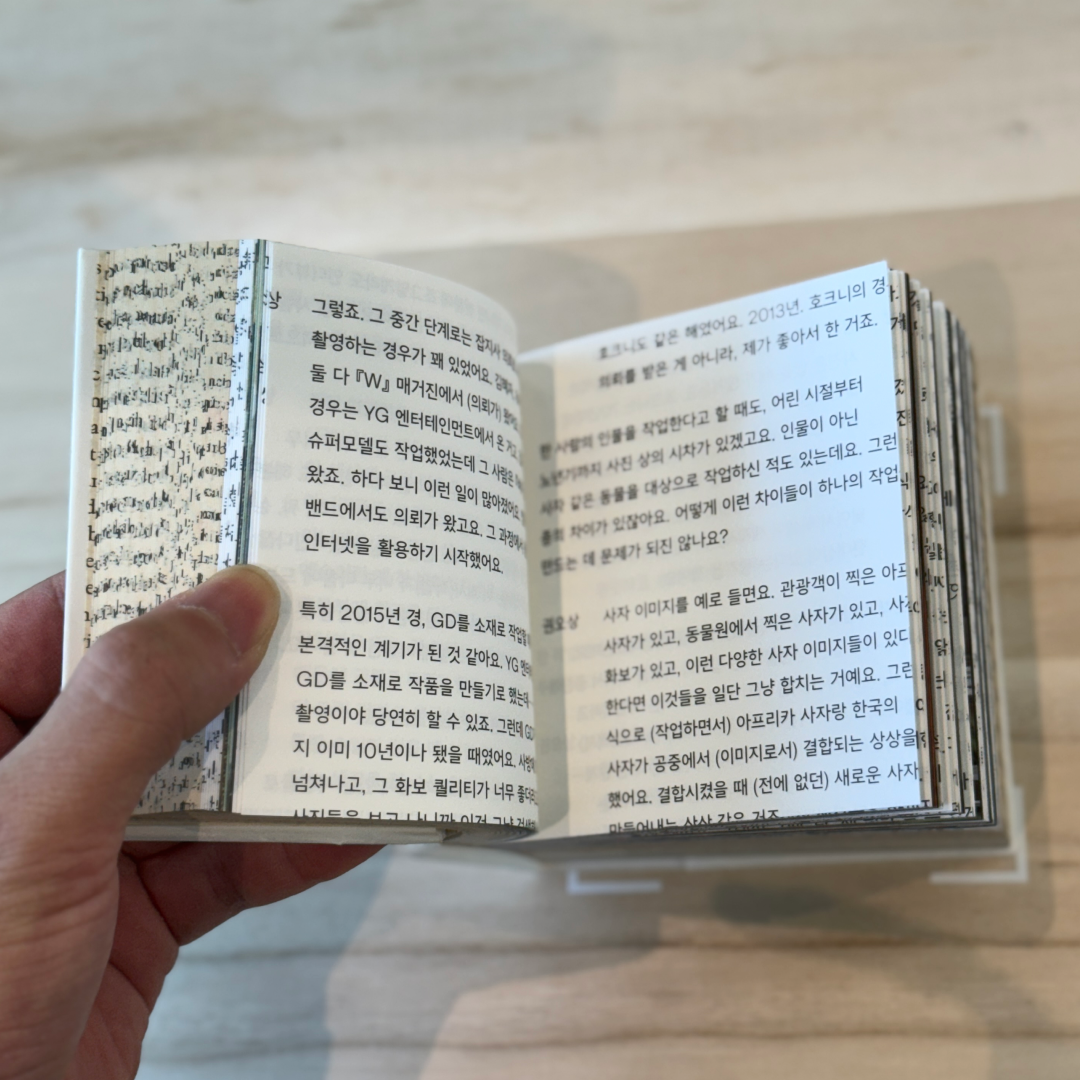 상
그렇죠. 그 중간 단계로는 잡지사
촬영하는 경우가 꽤 있었어요.
둘 다 『W』 매거진에서 (의뢰가)
경우는 YG 엔터테인먼트에서 온
슈퍼모델도 작업했었는데 그 사람은
왔죠. 하다 보니 이런 일이 많아졌어요.
밴드에서도 의뢰가 왔고요. 그 과정에서
인터넷을 활용하기 시작했어요.
특히 2015년 경, GD를 소재로
본격적인 계기가 된 것 같아요. YG
GD를 소재로 작품을 만들기로 했는데
촬영이야 당연히 할 수 있죠. 그런데
지 이미 10년이나 됐을 때였어요.
넘쳐나고, 그 화보 퀄리티가 너무
호크니도 같은 해였어요. 2013년. 호크니의 경
의뢰를 받은 게 아니라, 제가 좋아서 한 거죠.
한 사람의 인물을 작업한다고 할 때도, 어린 시절부터
노년기까지 사진 상의 시차가 있겠고요. 인물이 아닌
사자 같은 동물을 대상으로 작업하신 적도 있는데요. 그런
종의 차이가 있잖아요. 어떻게 이런 차이들이 하나의 작업
만드는 데 문제가 되진 않나요?
권오상
사자 이미지를 예로 들면요. 관광객이 찍은
사자가 있고, 동물원에서 찍은 사자가 있고,
화보가 있고, 이런 다양한 사자 이미지들이 있다
한다면 이것들을 일단 그냥 합치는 거예요. 그런
식으로 (작업하면서) 아프리카 사자랑 한국의
사자가 공중에서 (이미지로서) 결합되는 상상을
했어요. 결합시켰을 때 (전에 없던) 새로운 사자
만들어내는 상상 같은 거죠.